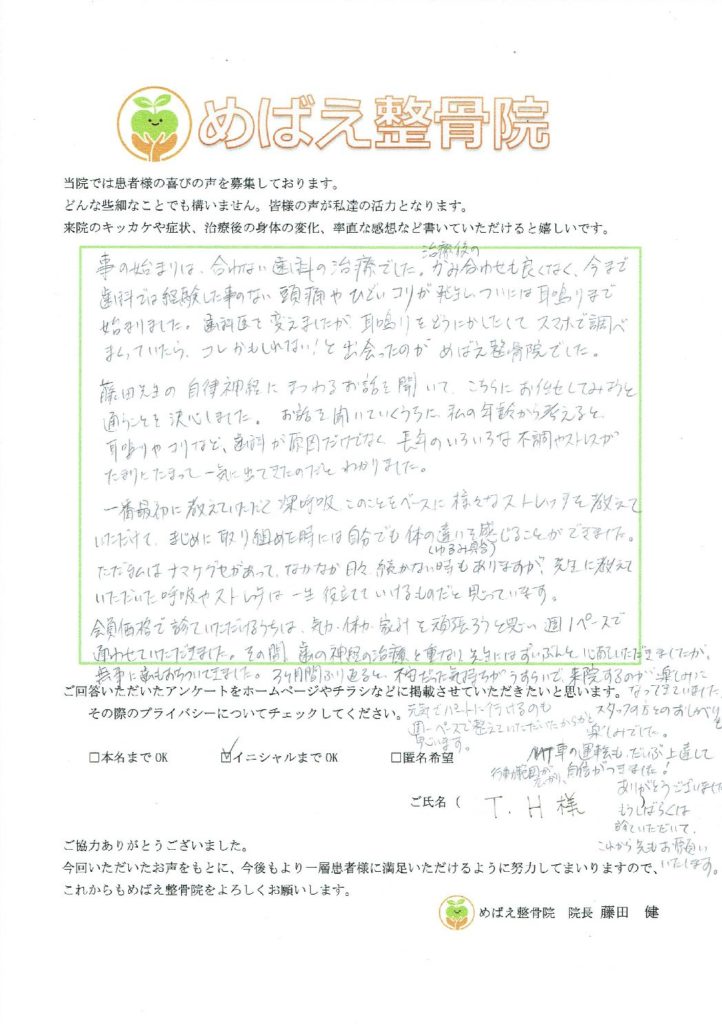 めばえ整骨院
当院では患者様の喜びの声を募集しております。
どんな些細なことでも構いません。皆様の声が私達の活力となります。
来院のキッカケや症状、治療後の身体の変化、率直な感想など書いていただけると嬉しいです。
治療後の
事の始まりは、合わない歯科の治療でした。かみ合わせも良くなく、今まで
歯科では経験した事のない頭痛やひどいコリが発生し、ついには耳鳴りまで
始まりました。歯科医も変えましたが、耳鳴りをどうにかしたくて スマホで調べ
まくっていたら、コレかもしれない!と出会ったのが めばえ整骨院でした。
藤田先生の自律神経にまつわるお話を聞いて、こちらにお任せしてみようと
通うことを決心しました。 お話を聞いていくうちに、私の年齢から考えると、
耳鳴りやコリなど、歯科が原因だけでなく、長年のいろいろな不調やストレスが
たまりにたまって一気に出てきたのだとわかりました。
一番最初に教えていただいた深呼吸、このことをベースに様々なストレッチを教えて
いただけて、まじめに取り組めた時には自分でも体の違いを感じることができました。
(ゆるみ具合)
ただ私はナマケグセがあって、なかなか日々続かない時もありますが、先生に教えて
いただいた呼吸やストレッチは一生役立てていけるものだと思っています。
会員価格で診ていただけるうちは、気力・体力・家計を頑張ろうと思い週1ペースで
通わせていただきました。その間、歯の神経の治療と重なり先生にはずいぶんと心配していただきましたが、
無事に歯もおちついてきました。3ヶ月間ふり返ると、不安だった気持ちがうすらいで、来院するのが楽しみに
なってきていました。
ご回答いただいたアンケートをホームページやチラシなどに掲載させていただきたいと思います。
その際のプライバシーについてチェックしてください。
元気でパートに行けるのも
週一ペースで整えていただいたからだと
思います。
スタッフの方とのおしゃべりも
楽しみでした。
MT車の運転も、だいぶ上達して
行動範囲が広がり、自信がつきました!
ありがとうございました
もうしばらくは
診ていただいて、
これから先もお願い
いたします。
□本名までOK ☑イニシャルまでOK □匿名希望
ご氏名( T.H様
ご協力ありがとうございました。
今回いただいたお声をもとに、今後もより一層患者様に満足いただけるように努力してまいりますので、
これからもめばえ整骨院をよろしくお願いします。
めばえ整骨院 院長 藤田 健